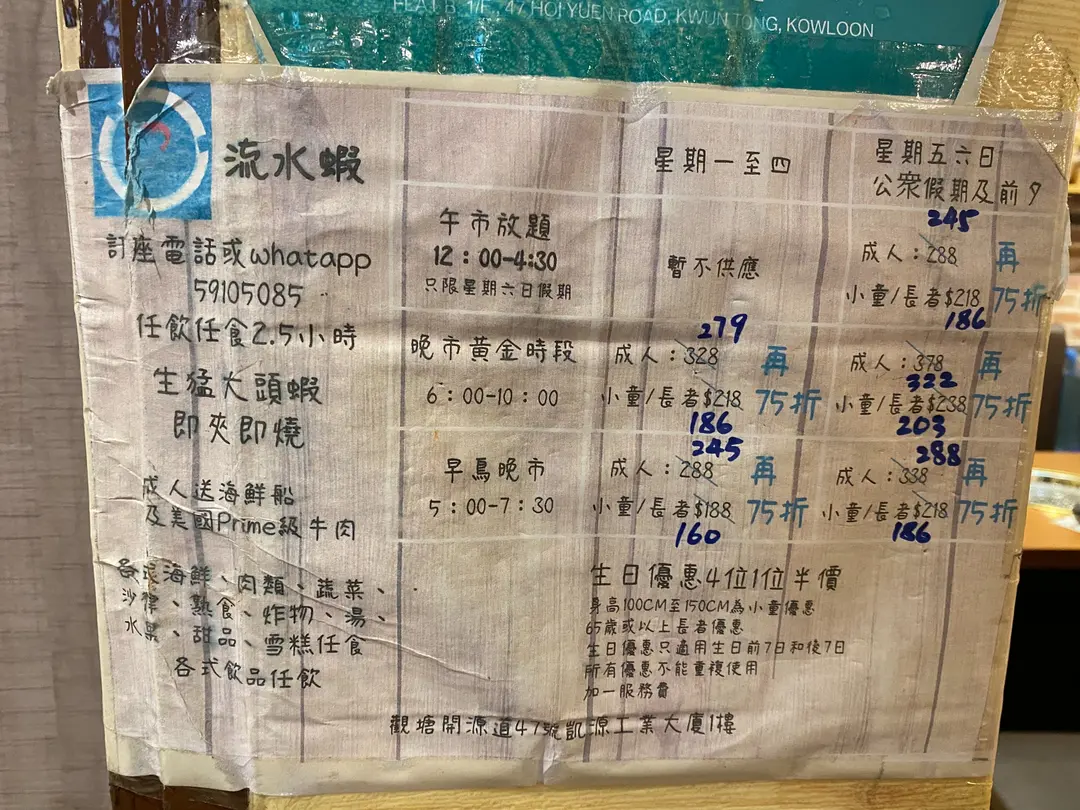 FLAT B, 1/F, 47 HOI YUEN ROAD, KWUN TONG, KOWLOON
流水蝦
訂座電話或whatapp
59105085
任飲任食2.5小時
生猛大頭蝦
即夾即燒
成人送海鮮船
及美國Prime級牛肉
環海鮮、肉類、蔬菜、
沙律、熟食、炸物、湯、
水果、甜品、雪糕任食
各式飲品任飲
星期一至四
星期五六日
公眾假期及前夕
午市放題
12:00-4:30
只限星期六日假期
暫不供應
245
成人:288
再
小童/長者$218
75折
186
晚市黃金時段
6:00-10:00
279
成人:328
再
小童/長者$218
75折
186
成人:378
再
322
小童/長者$238
75折
203
早鳥晚市
5:00-7:30
245
成人:288
再
小童/長者$188
75折
160
288
成人:338
再
小童/長者$218
75折
186
生日優惠4位1位半價
身高100CM至150CM為小童優惠
65歲或以上長者優惠
生日優惠只適用生日前7日和後7日
所有優惠不能重複使用
加一服務費
觀塘開源道47號凱源工業大廈1樓